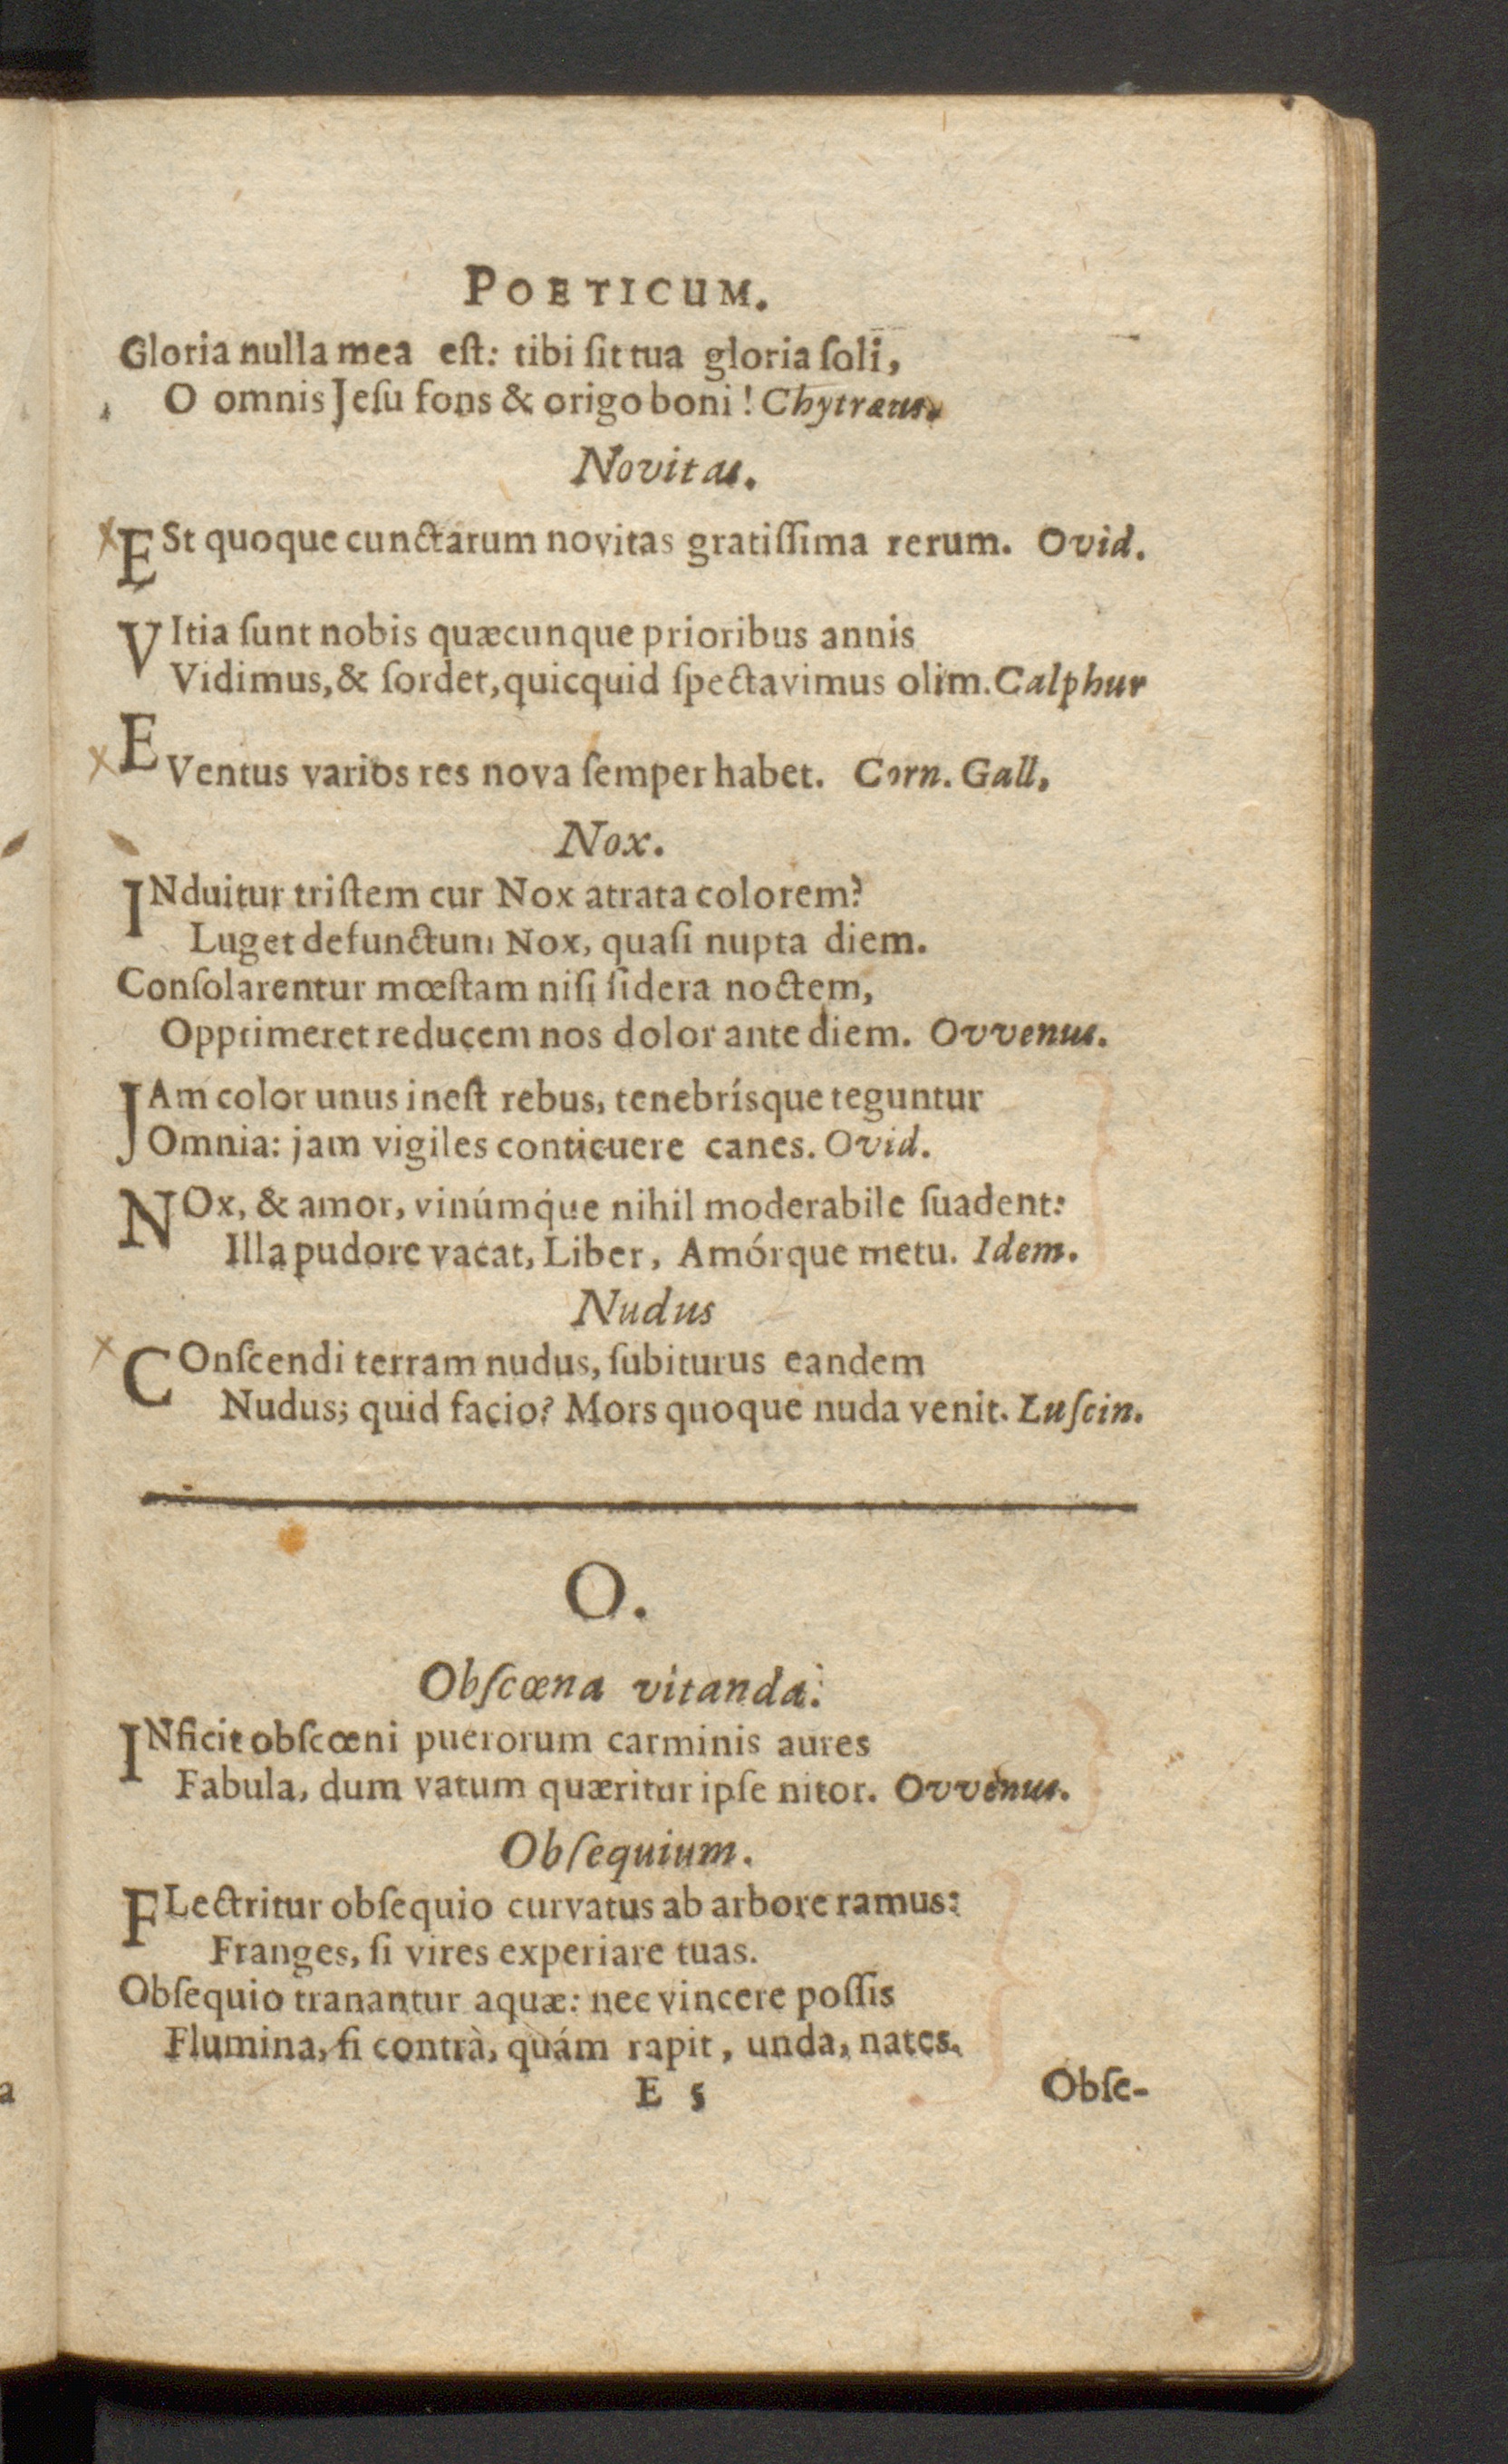 POETICUM.
Gloria nulla mea eſt: tibi ſit tua gloria ſoli,
O omnis Jeſu fons & origo boni! Chytræus.
Novitas.
ESt quoque cunctarum novitas gratiſſima rerum. Ovid.
VItia ſunt nobis quæcunque prioribus annis
Vidimus, & ſordet, quicquid ſpectavimus olim. Calphur
EVentus varios res nova ſemper habet. Corn. Gall.
Nox.
INduitur triſtem cur Nox atrata colorem?
Luget defunctum Nox, quaſi nupta diem.
Conſolarentur mœſtam niſi ſidera noctem,
Opprimeret reducem nos dolor ante diem. Ovvenus.
JAm color unus ineſt rebus, tenebrísque teguntur
Omnia: jam vigiles conticuere canes. Ovid.
NOx, & amor, vinúmq́ue nihil moderabile ſuadent:
Illa pudore vacat, Liber, Amórque metu. Idem.
Nudus
COnſcendi terram nudus, ſubiturus eandem
Nudus; quid facio? Mors quoque nuda venit. Luſcin.
O.
Obſcœna vitanda.
INficit obſcœni puerorum carminis aures
Fabula, dum vatum quæritur ipſe nitor. Ovvenus.
Obſequium.
FLectritur obſequio curvatus ab arbore ramus:
Franges, ſi vires experiare tuas.
Obſequio tranantur aquæ: nec vincere poſſis
Flumina, ſi contrà, quám rapit, unda, nates.
E 5 Obſe-
a